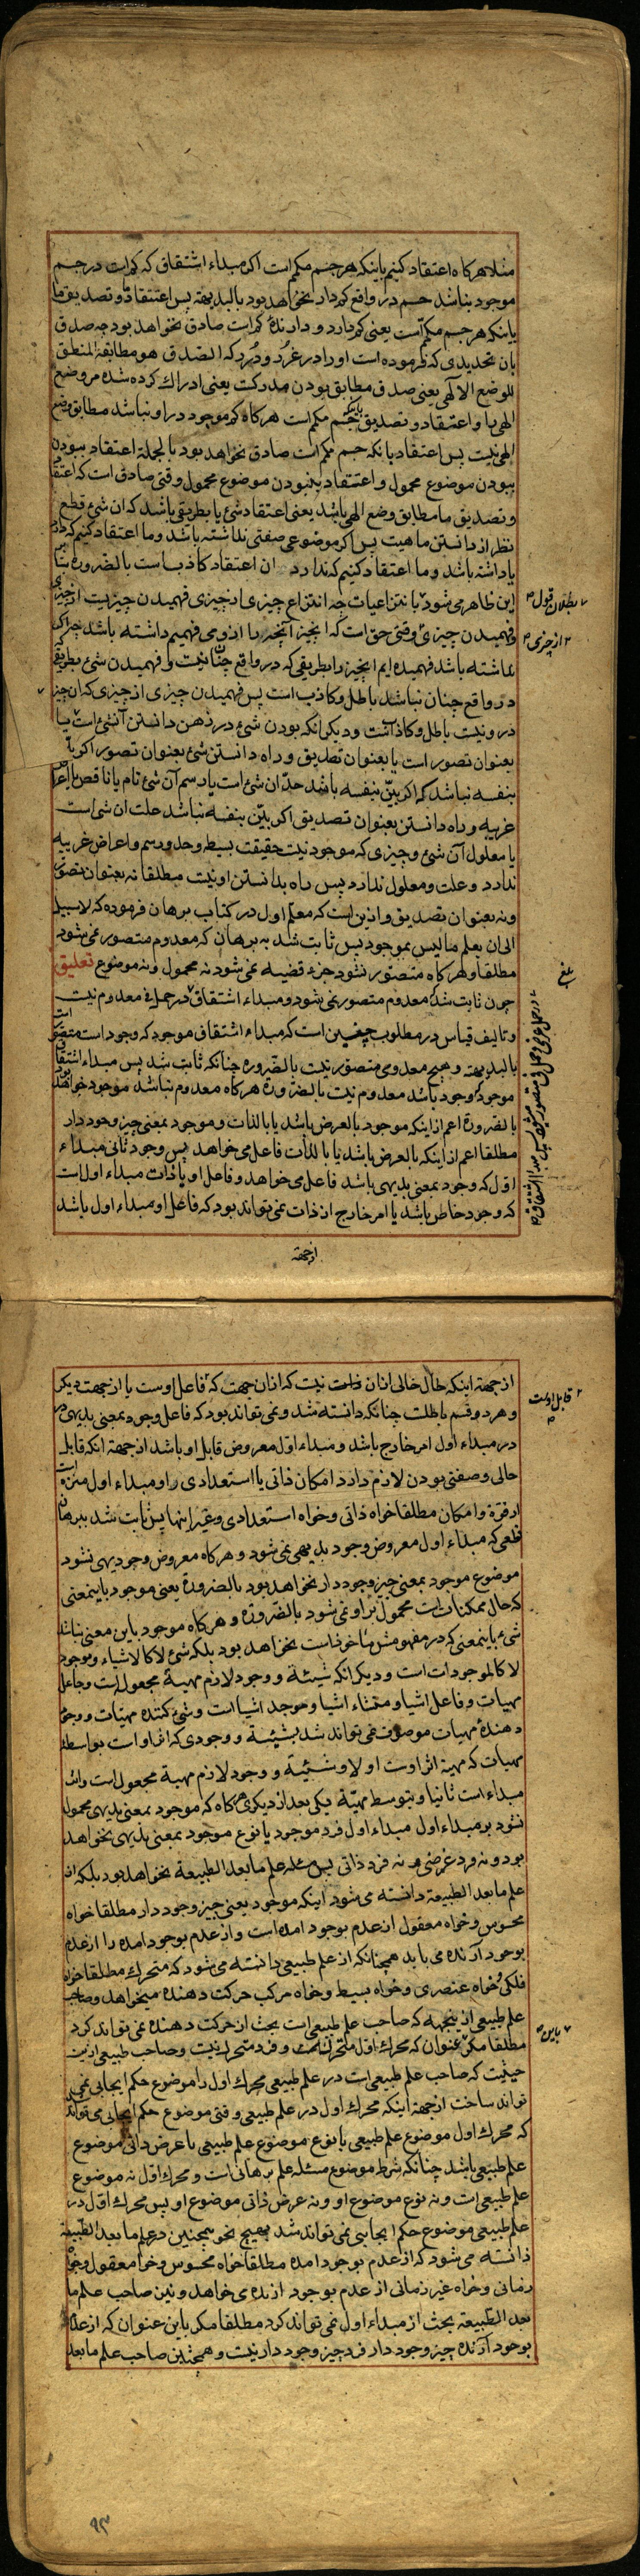 مثلا هر کاه اعتقاد کنیم باینکه هر جسم مکمم است اکر مبداء اشتقاق که کم است در جسم
موجود نباشد جسم در واقع کم دار نخواهد بود بالبدیهة پس اعتقاد و تصدیق ما
باینکه هر جسم مکمم است یعنی کم دارد و دارندهٔ کم است صادق نخواهد بود چه صدق
بان تحدیدی که فرموده است او را در غرر و درر که الصدق هو مطابقة المنطق
للوضع الالهی یعنی صدق مطابق بودن مدرکست یعنی ادراک کرده شده مر وضع
الهی را و اعتقاد و تصدیق باینکه جسم مکمم است هر کاه کم موجود در او نباشد مطابق وضع
الهی نیست پس اعتقاد بانکه جسم مکمم است صادق نخواهد بود بالجملة اعتقاد ببودن
ببودن موضوع محمول و اعتقاد بنبودن موضوع محمول وقتی صادق است که اعتقاد
و تصدیق ما مطابق وضع الهی باشد یعنی اعتقاد شئ یا بطریقی باشد که ان شئ قطع
نظر از دانستن ما هست پس اکر موضوعی صفتی نداشته باشد و ما اعتقاد کنیم که دارد
یا داشته باشد و ما اعتقاد کنیم که ندارد ان اعتقاد کاذب است بالضرورة بنا بر
این ظاهر می شود بانتزاعیات چه انتزاع چیزی از چیزی فهمیدن چیزیست از چیزی
و فهمیدن چیزی وقتی حق است که انچیز آنچه را از و می فهمیم داشته باشد چه اکر
نداشته باشد فهمیده ایم انچیز را بطریقی که در واقع چنان نیست و فهمیدن شئ بطریقی
در واقع چنان نباشد باطل و کاذب است پس فهمیدن چیزی از چیزی که ان چیز
در و نیست باطل و کاذبست و دیکر انکه بودن شئ در ذهن دانستن آنشئ است یا
بعنوان تصور است یا بعنوان تصدیق و راه دانستن شئ بعنوان تصور اکر بین
بنفسه نباشد که اکر بین بنفسه باشد حد ان شئ است یا رسم آن شئ تام یا ناقص یا اعراض
غریبه و راه دانستن بعنوان تصدیق اکر بین بنفسه نباشد علت ان شئ است
یا معلول آن شئ و چیزی که موجود نیست حقیقت بسیطه و حد و رسم و اعراض غریبه
ندارد و علت و معلول ندارد پس راه بدانستن او نیست مطلقا نه بعنوان تصور
و نه بعنوان تصدیق و ازین است که معلم اول در کتاب برهان فرموده که لا سبیل
الی ان یعلم ما لیس بموجود پس ثابت شد به برهان که معدوم متصور نمی شود
مطلقا و هر کاه متصور نشود جزء قضیه نمی شود نه محمول و نه موضوع تعلیق
چون ثابت شد که معدوم متصور نمی شود و مبداء اشتقاق در حمل معدوم نیست
و تالیف قیاس در مطلوب چنین است که مبداء اشتقاق موجود که وجود است متصور است
بالبدیهه و هیچ معدومی متصور نیست بالضروره چنانکه ثابت شد پس مبداء اشتقاق
موجود که وجود باشد معدوم نیست بالضرورة هر کاه معدوم نباشد موجود خواهد بود
بالضرورة اعم از اینکه موجود بالعرض باشد یا بالذات و موجود بمعنی چیز وجود دار
مطلقا اعم از اینکه بالعرض باشد یا بالذات فاعل می خواهد پس وجود ثانی مبداء
اول که وجود بمعنی بدیهی باشد فاعل می خواهد و فاعل او یا ذات مبداء اول است
که وجود خاص باشد یا امر خارج از ذات نمی تواند بود که فاعل او مبداء اول باشد
از جهة
بطلان قول
از چیزی
بلغ
از جهة اینکه حال خالی از ان ذات نیست که از ان جهت که فاعل اوست یا از جهت دیکر
و هر دو قسم باطلست چنانکه دانسته شد و نمی تواند بود که فاعل وجود بمعنی بدیهی
در مبداء اول امر خارج باشد و مبداء اول معروض قابل او باشد از جهة اینکه قابل
حالی و صفتی بودن لازم دارد امکان ذاتی یا استعدادی را و مبداء اول منزه است
از قوة و امکان مطلقا خواه ذاتی و خواه استعدادی و غیر اینها پس ثابت شد ببرهان
قطعی که مبداء اول معروض وجود بدیهی نمی شود و هر کاه معروض وجود بدیهی نشود
موضوع موجود بمعنی چیز وجود دار نخواهد بود بالضرورة یعنی موجود باینمعنی
که حال ممکناتست محمول بر او نمی شود بالضرورة و هر کاه موجود باین معنی نباشد
شئ باینمعنی که در مفهومش ماخوذست نخواهد بود بلکه شئ لا کالاشیاء و موجود
لا کالموجودات است و دیکر انکه شیئیة و وجود لازم مهیة مجعول است و جاعل
مهیات و فاعل اشیا و منشاء اشیا و موجد اشیا است و شئ کننده مهیات و وجود
دهندهٔ مهیات موصوف نمی تواند شد بشیئیة و وجودی که اثر او است بواسطه
مهیات که مهیة اثر اوست اولا و شیئیة و وجود لازم مهیة مجعول است و اثر
مبداء است ثانیا و بتوسط مهیة یکی بعد از دیکری هر کاه که موجود بمعنی بدیهی محمول
نشود بر مبداء اول مبداء اول فرد موجود یا نوع موجود بمعنی بدیهی نخواهد
بود و نه فرد عرضی و نه فرد ذاتی پس مسئله علم ما بعد الطبیعة نخواهد بود بلکه از
علم ما بعد الطبیعة دانسته می شود اینکه موجود یعنی چیز وجود دار مطلقا خواه
محسوس و خواه معقول از عدم بوجود امده است و از عدم بوجود امده را از عدم
بوجود آرنده می باید همچنانکه از علم طبیعی دانسته می شود که متحرک مطلقا خواه
فلکی و خواه عنصری و خواه بسیط و خواه مرکب حرکت دهنده میخواهد و صاحب
علم طبیعی از ینجهه که صاحب علم طبیعی است بحث از حرکت دهنده نمی تواند کرد
مطلقا مکر باین عنوان که محرک اول متحرک نیست و فرد متحرک نیست و صاحب طبیعی از ین
حیثیت که صاحب علم طبیعی است در علم طبیعی محرک اول را موضوع حکم ایجابی نمی
تواند ساخت از جهة اینکه محرک اول در علم طبیعی وقتی موضوع حکم ایجابی می تواند
که محرک اول موضوع علم طبیعی یا نوع موضوع علم طبیعی یا عرض ذاتی موضوع
علم طبیعی باشد چنانکه شرط موضوع مسئله علم برهانی است و محرک اول نه موضوع
علم طبیعی است و نه نوع موضوع او و نه عرض ذاتی موضوع او پس محرک اول در
علم طبیعی موضوع حکم ایجابی نمی تواند شد بهیچ نحو همچنین در علم ما بعد الطبیعة
دانسته می شود که از عدم بوجود امده مطلقا خواه محسوس و خواه معقول و خواه
زمانی و خواه غیر زمانی از عدم بوجود ارنده می خواهد و نیز صاحب علم ما
بعد الطبیعة بحث از مبداء اول نمی تواند کرد مطلقا مکر باین عنوان که از عدم
بوجود آرنده چیز وجود دار فرد چیز وجود دار نیست و همچنین صاحب علم ما بعد
قابل اوست
باین
۹۳